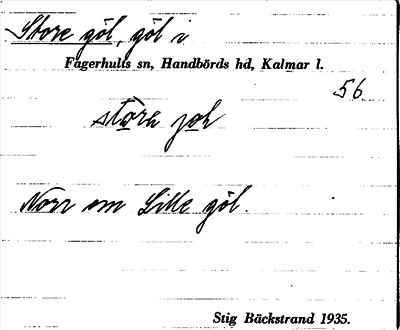 Store göl, göl i
Fagerhults sn, Handbörds hd, Kalmar l.
56
Norr om Lille göl.
Stig Bäckstrand 1935.